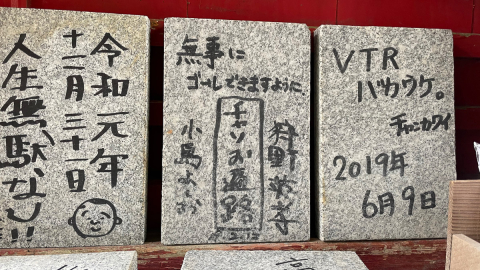 令和元年
十二月三十一日
人生無駄なし!!
無事に
ゴールできますように。
狩野
チャリお遍路
小島よしお
VTR
バカウケ。
チャンカワイ
2019年
6月9日